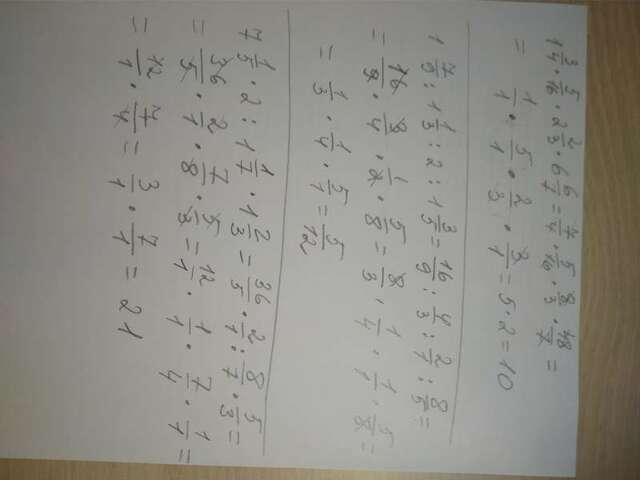 1 3/4 · 5/16 · 2 2/3 · 6 6/7 = 7/4 · 5/16 · 8/3 · 48/7 =
= 1/1 · 5/1 · 2/3 · 3/1 = 5 · 2 = 10
1 7/9 : 1 1/3 : 2 : 1 3/5 = 16/9 : 4/3 : 2/1 : 8/5 =
= 16/9 · 3/4 · 1/2 · 5/8 = 8/3 · 1/4 · 1/1 · 5/8 =
= 1/3 · 1/4 · 5/1 = 5/12
7 1/5 · 2 : 1 1/7 · 1 2/3 = 36/5 · 2/1 : 8/7 · 5/3 =
= 36/5 · 2/1 · 7/8 · 5/3 = 12/1 · 1/1 · 7/4 · 1/1 =
= 12/1 · 7/4 = 3/1 · 7/1 = 21